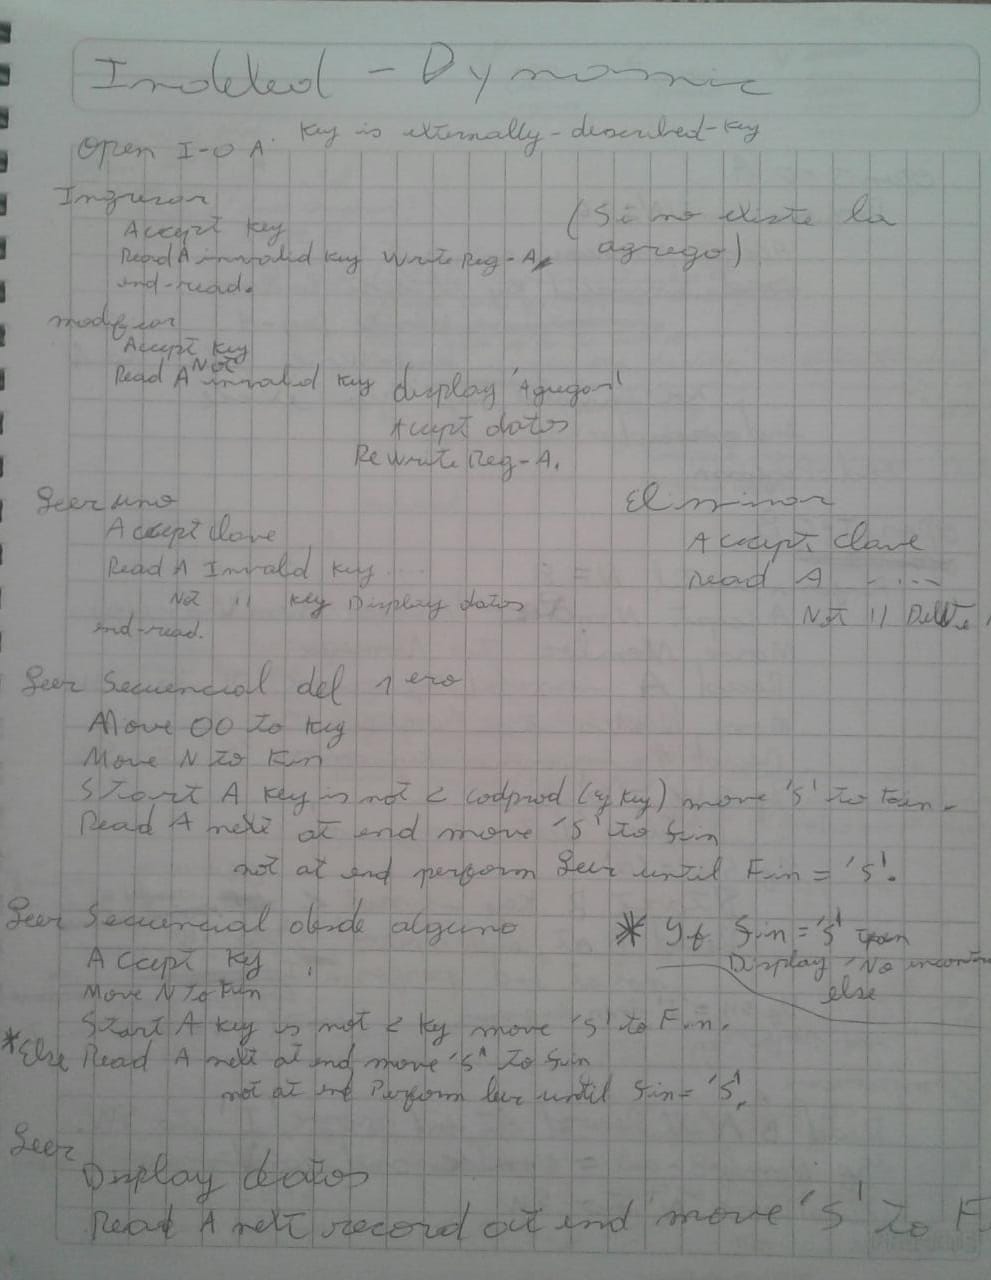 Indexed - Dynamic
Key is externally-described-key
Open I-O A.
Ingresar
(Si no existe la
agrego)
Accept key
Read A invalid key write Reg-A
end-read.
modificar
Accept key
Read A Not invalid key display 'Agregar'
Accept datos
Rewrite Reg-A.
Leer uno
Accept clave
Read A Invalid key ...
Not 11 key Display datos
end-read.
Eliminar
Accept clave
Read A - ...
Not 11 Delete
Leer Secuencial del 1ero
Move 00 to key
Move N to Fin
Start A key is not < codprod (y key) move 'S' to Fin.
Read A next at end move 'S' to Fin
not at end perform Leer until Fin = 'S'.
Leer Secuencial desde alguno
* If Fin = 'S' then
Display 'No
else
Accept key
Move N to Fin
Start A key is not < key move 'S' to Fin.
*Else Read A next at end move 'S' to Fin
not at end Perform leer until Fin = 'S'.
Leer
Display datos
Read A next record at end move 'S' to F